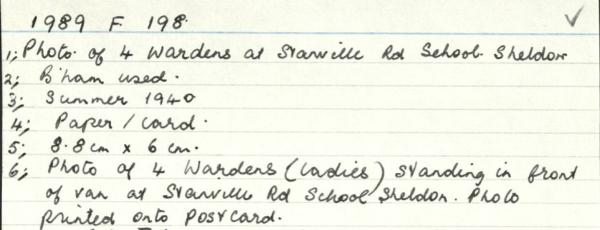 1989 F 198.
1; Photo of 4 Wardens at Stanville Rd School. Sheldon
2; B'ham used.
3; Summer 1940
4; Paper / card.
5; 8.8cm x 6 cm.
6; Photo of 4 Wardens (ladies) standing in front
of van at Stanville Rd School Sheldon. Photo
printed onto postcard.